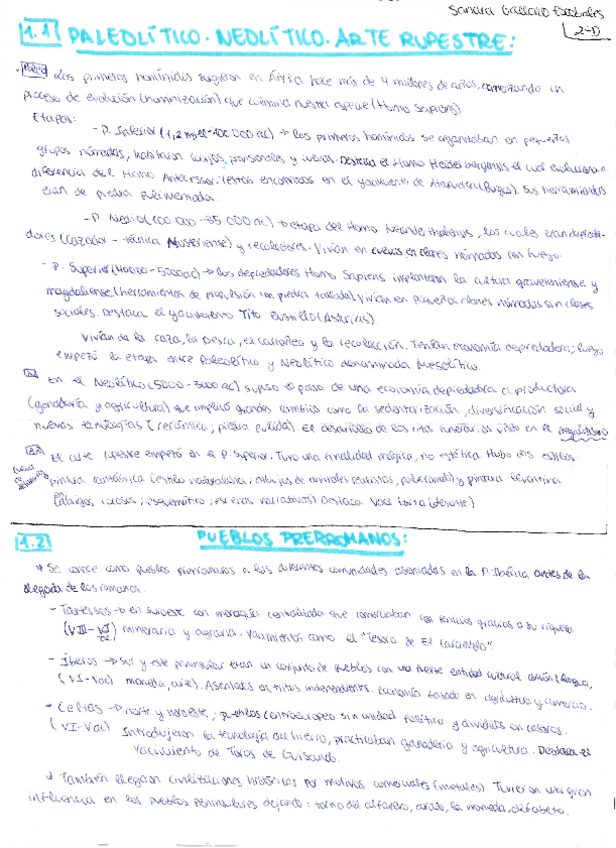 Sandra Gallardo
2-D
1.1 PALEOLÍTICO. NEOLÍTICO. ARTE RUPESTRE:
Los primeros homínidos surgieron en África hace más de 4 millones de años, comenzando un
proceso de evolución (hominización) que culmina nuestra especie (Homo Sapiens)
Etapas:
- P. Inferior → los primeros homínidos se organizaban en pequeños
grupos nómadas, habitaban y . Destaca el Homo Heidelbergensis el cual evolucionó a
diferencia del Homo Antecessor. Restos encontrados en el yacimiento de Atapuerca (Burgos). Sus herramientas
eran de piedra
- P. Medio (100 000 - 35 000 ac) → etapa del Homo Neanderthalensis, los cuales eran depreda-
dores (cazador - técnica Musteriense) y recolectores. Vivían en cuevas en clanes nómadas con fuego.
- P. Superior → los depredadores Homo Sapiens implantaron la cultura graveniense y
magdaliense (herramientas de con piedra tallada). Vivían en pequeños clanes nómadas sin clases
sociales. Destaca el yacimiento Tito Bustillo (Asturias)
Vivían de la caza, la pesca, el carroñeo y la recolección. Tenían economía depredadora; luego
empezó la etapa entre Paleolítico y Neolítico denominada Mesolítico.
En el Neolítico (5000 - 3000 ac) supuso el paso de una economía depredadora a productora
(ganadería y agricultura) que implicó grandes cambios como la sedentarización, diversificación social y
nuevas tecnologías (cerámica, piedra pulida). El desarrollo de los ritos funerarios visto en el megalitismo
El arte rupestre empezó en el P. Superior. Tuvo una finalidad mágica, no estética. Hubo dos estilos:
pintura cantábrica (estilo naturalista; dibujos de animales realistas, policromado) y pintura levantina
(abrigos rocosos; esquemático; escenas narrativas). Destaca
1.2 PUEBLOS PRERROMANOS:
* Se conoce como pueblos prerromanos a las diferentes comunidades asentadas en la P. Ibérica antes de la
llegada de los romanos.
- Tartessos → en suroeste con monarquía centralizada que comerciaban con fenicios gracias a su riqueza
(VIII - VI) minera y agraria. Yacimientos como el "Tesoro de El Carambolo".
- Íberos → sur y este peninsular eran un conjunto de pueblos con una fuerte entidad cultural común (lengua,
(VI - Vac) moneda, arte). Asentados en tribus independientes. Economía basada en agricultura y comercio.
- Celtas → norte y noroeste; pueblos centroeuropeo sin unidad político y divididos en castros.
(VI-Vac) Introdujeron la tecnología del hierro, practicaban ganadería y agricultura. Destaca el
Yacimiento de Toros de Guisando.
* También llegaron civilizaciones históricas por motivos comerciales (metales). Tuvieron una gran
influencia en los pueblos peninsulares dejando: torno del alfarero, arado, la moneda, alfabeto.